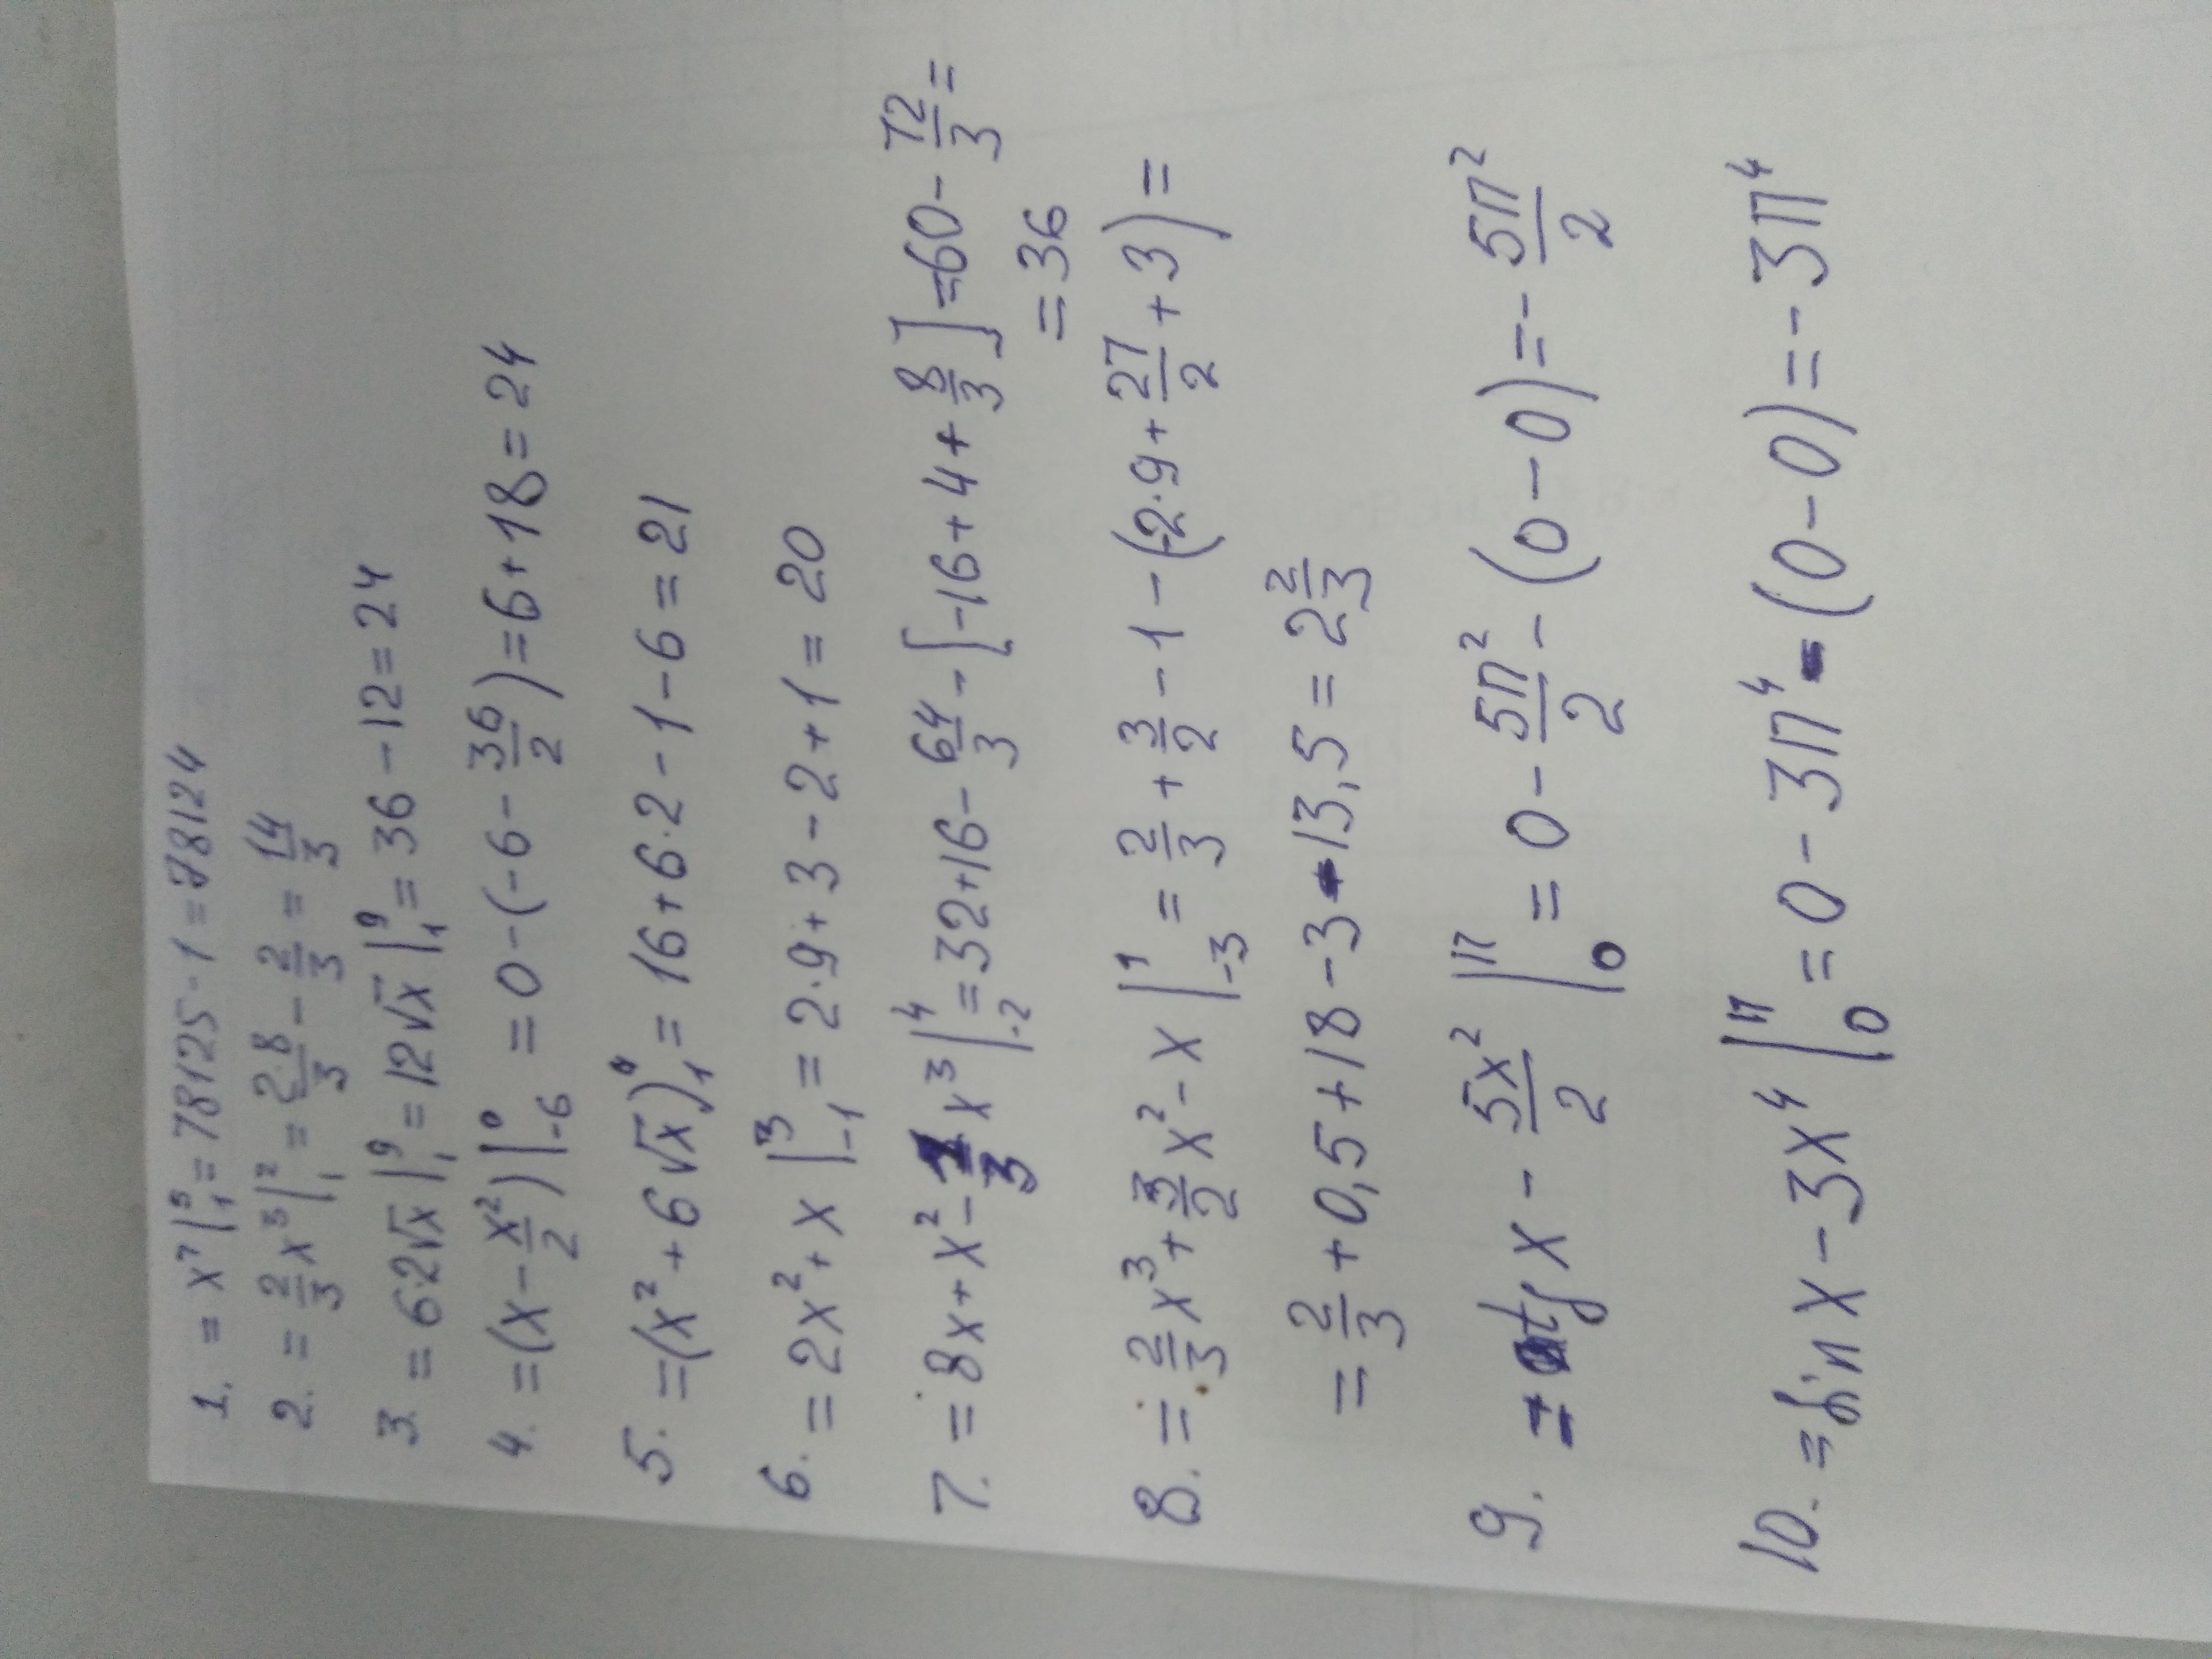 1. = x⁷|₁⁵ = 78125 - 1 = 78124
2. = 2/3 x³|₁² = 2·8/3 - 2/3 = 14/3
3. = 6·2√x|₁⁹ = 12√x|₁⁹ = 36 - 12 = 24
4. = (x - x²/2)|₋₆⁰ = 0 - (-6 - 36/2) = 6 + 18 = 24
5. = (x² + 6√x)₁⁴ = 16 + 6·2 - 1 - 6 = 21
6. = 2x² + x|₋₁³ = 2·9 + 3 - 2 + 1 = 20
7. = 8x + x² - 1/3 x³|₋₂⁴ = 32 + 16 - 64/3 - [-16 + 4 + 8/3] = 60 - 72/3 =
= 36
8. = 2/3 x³ + 3/2 x² - x|₋₃¹ = 2/3 + 3/2 - 1 - (-2·9 + 27/2 + 3) =
= 2/3 + 0,5 + 18 - 3 - 13,5 = 2 2/3
9. = tg x - 5x²/2 |₀^π = 0 - 5π²/2 - (0 - 0) = - 5π²/2
10. = sin x - 3x⁴|₀^π = 0 - 3π⁴ - (0 - 0) = - 3π⁴